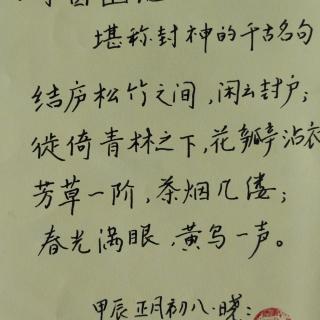 堪称封神的千古名句
结庐松竹之间，闲云封户；
徙倚青林之下，花瓣沾衣
芳草一阶，茶烟几缕；
春光满眼，黄鸟一声。
甲辰正月初八·晓：